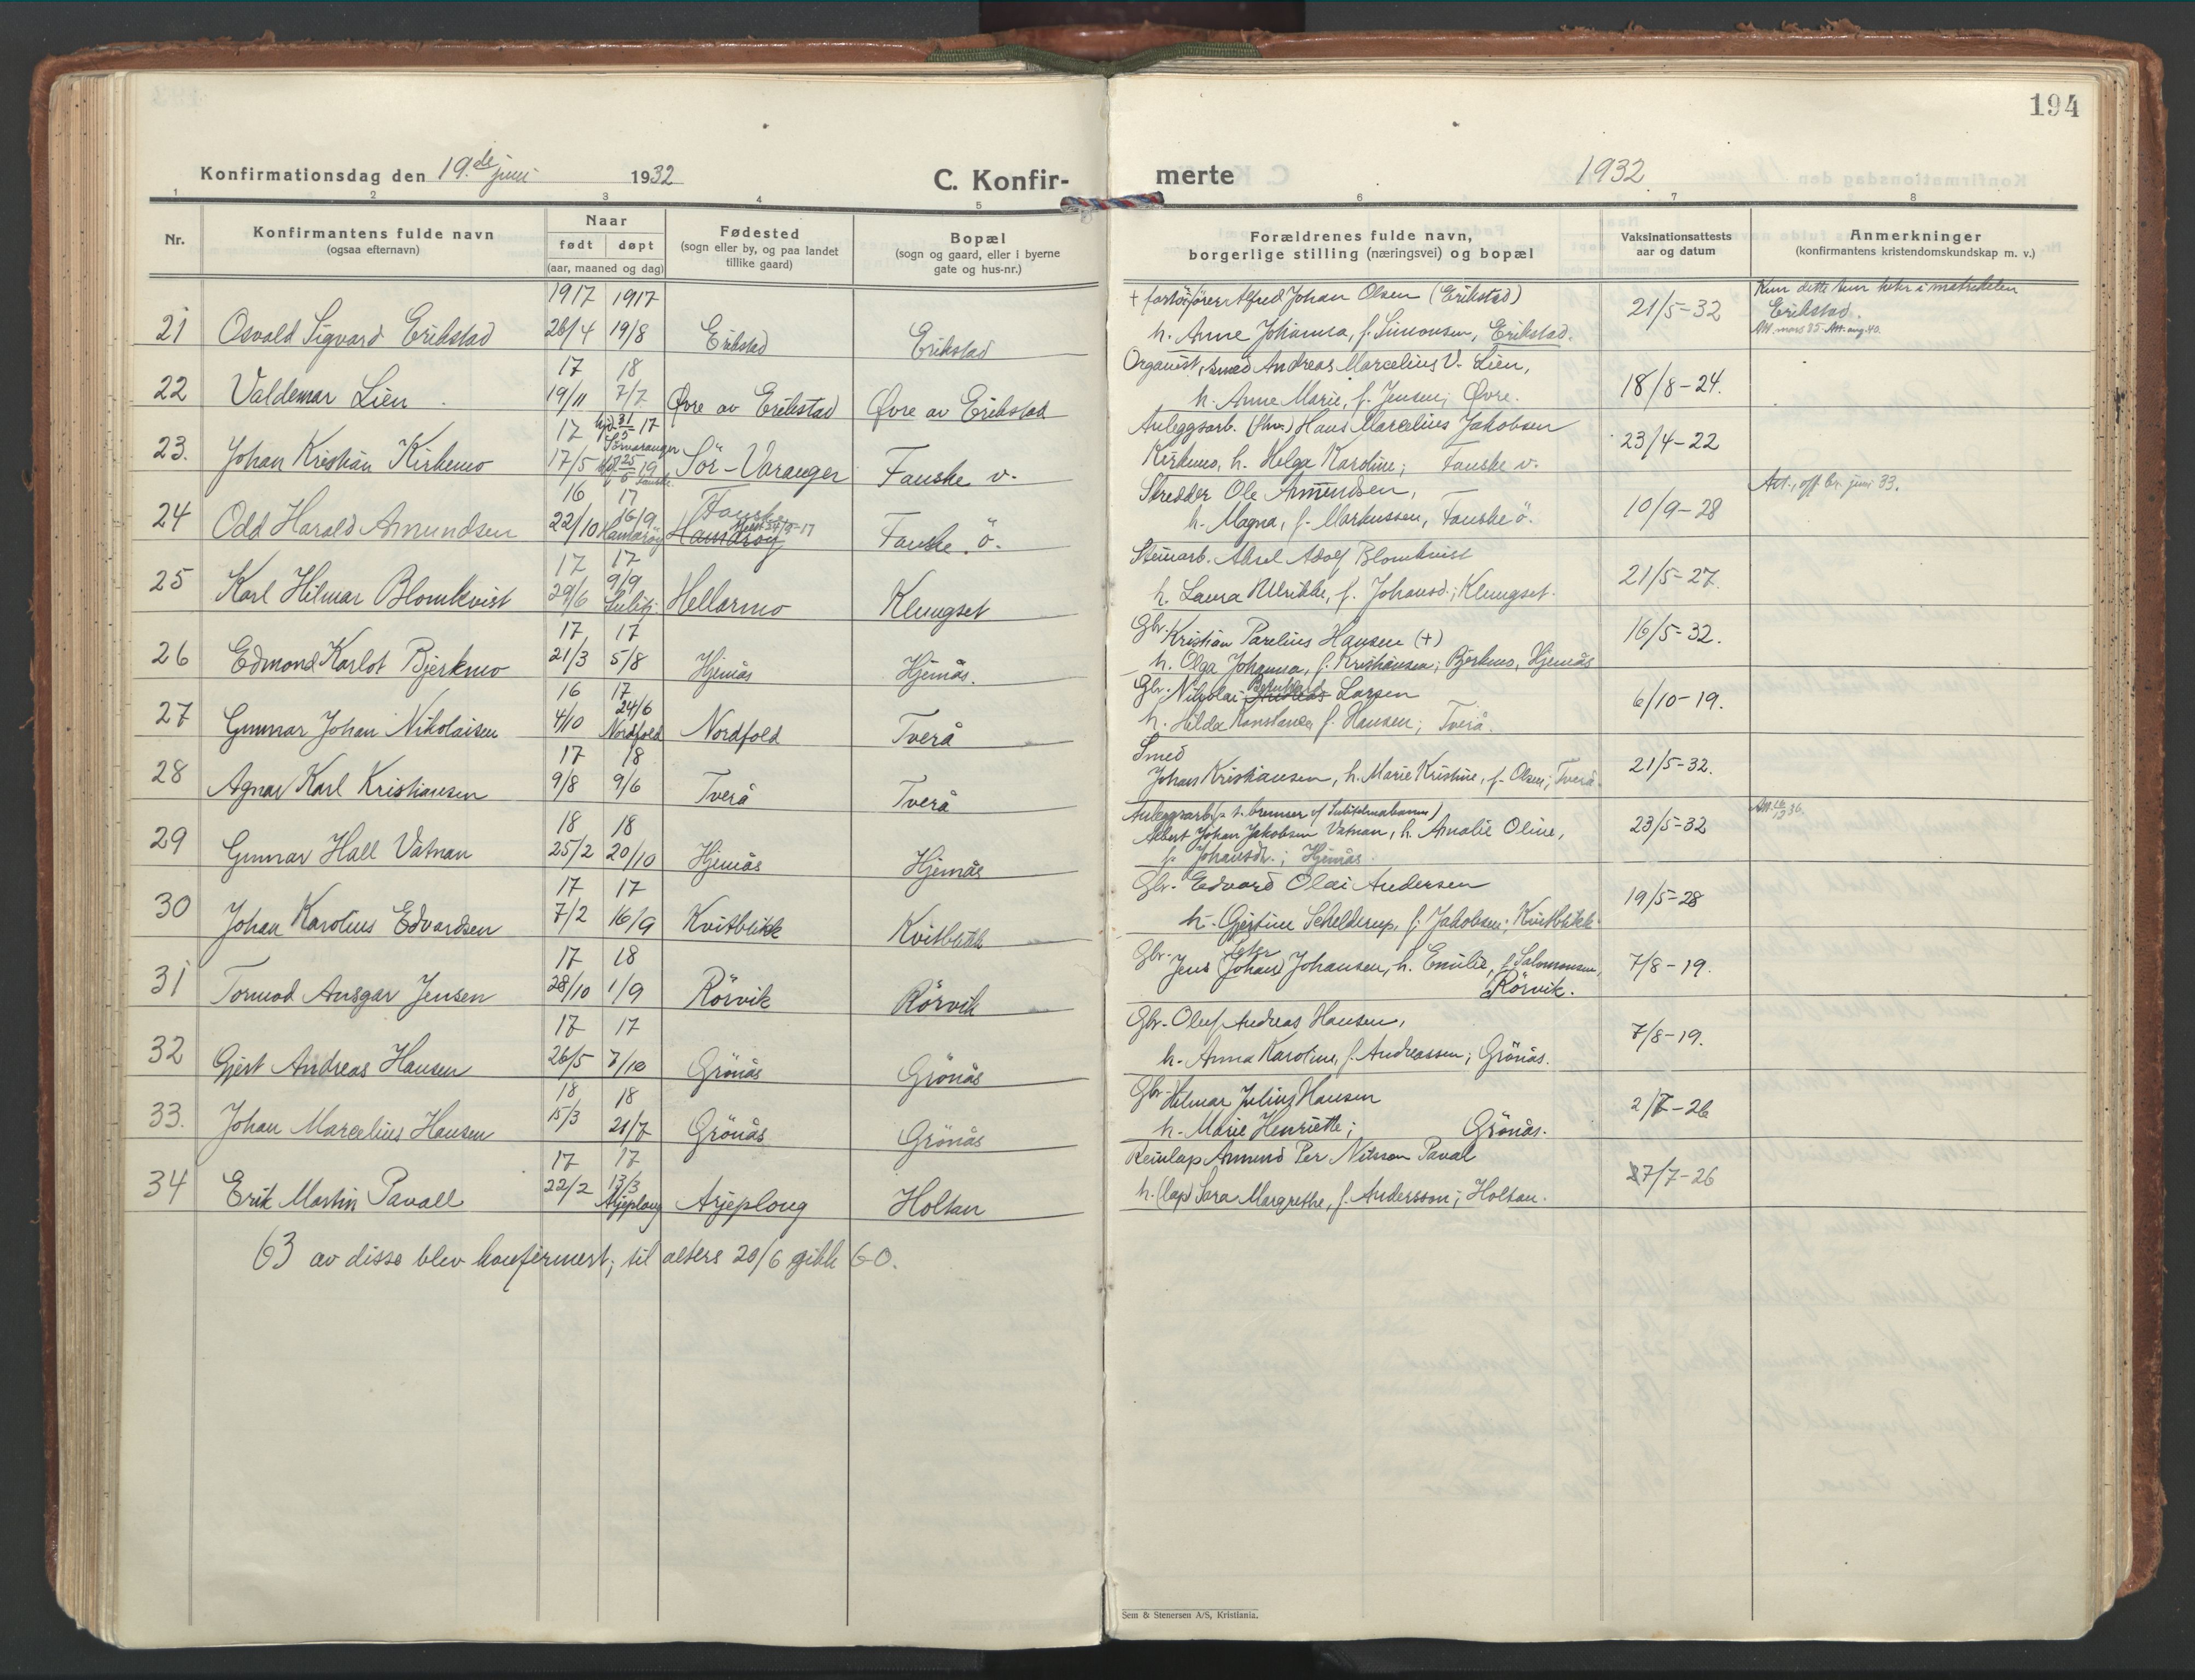 194
Konfirmationsdag den 19.de juni 1932
C. Konfir-
merte
1932
1 2 3 4 5 6 7 8
Nr.
Konfirmantens fulde navn
(ogsaa efternavn)
Naar
født døpt
(aar, maaned og dag)
Fødested
(sogn eller by, og paa landet
tillike gaard)
Bopæl
(sogn og gaard, eller i byerne
gate og hus-nr.)
Forældrenes fulde navn,
borgerlige stilling (næringsvei) og bopæl
Vaksinationsattests
aar og datum
Anmerkninger
(konfirmantens kristendomskundskap m. v.)
1917 1917
21 Osvald Sigvard Erikstad 26/4 19/8 Erikstad Erikstad
+ Alfred Johan Olsen (Erikstad)
h. Anne Johanna, f. Simonsen, Erikstad.
21/5-32
Kun dette i matrikelen
Erikstad.
Att. mars 35. Att. aug. 40.
17 18
22 Valdemar Lien 19/11 7/7 Øvre av Erikstad Øvre av Erikstad
Organist, smed Andreas Marcelius V. Lien,
h. Anne Marie, f. Jensen; Øvre.
18/8-24.
17 hjd. 31/5 17
Sörvaranger
23. Johan Kristian Kirkemo 17/5 25/5 19 Fauske Sör-Varanger Fauske v.
Anleggsarb. Hans Marcelius Jakobsen
Kirkemo, h. Helga Karoline; Fauske v.
23/4-22
16 17 Fauske
24 Odd Harald Amundsen 22/10 16/9 Hamaröy Hamaröy Fauske ö.
Skredder Ole Amundsen,
h. Magna, f. Markussen, Fauske ö.
10/9-28
Att., off. br. juni 33.
17 17
25 Karl Hilmar Blomkvist 29/6 9/9 Sulitj. Hellarmo Klungset
Stenarb. Aksel Adolf Blomkvist
h. Laura Ulrikke, f. Johansd.; Klungset.
21/5-27.
17 17
26 Edmond Karlot Bjerkmo 21/3 5/8 Hjemås Hjemås.
Gbr. Kristian Parelius Hansen (+)
h. Olga Johanna, f. Kristiansen; Bjerkmo, Hjemås
16/5-32.
16 17
27 Gunnar Johan Nikolaisen 4/10 24/6 Nordfold Nordfold Tverå
Gbr. Nikolai Andreas Larsen
h. Hilda Konstanse, f. Hansen; Tverå.
6/10-19.
17 18
28 Agnar Karl Kristiansen 9/8 9/6 Tverå Tverå
Smed
Johan Kristiansen, h. Marie Kristine, f. Olsen; Tverå.
21/5-32.
18 18
29 Gunnar Hall Vatnan 25/2 20/10 Hjemås Hjemås
Anleggsarb. (p. t. bremser v/ Sulitelmabanen)
Albert Johan Jakobsen Vatnan, h. Amalie Oline,
f. Johansdr.; Hjemås.
23/5-32
17 17
30 Johan Karolius Edvardsen 7/2 16/9 Kvitblikk Kvitblikk
Gbr. Edvard Olai Andersen
h. Gjertine Schelderup, f. Jakobsen; Kvitblikk.
19/5-28
17 18
31 Tormod Ansgar Jensen 28/10 1/9 Rörvik Rörvik
Gbr. Jens Peter (Johan) Johansen, h. Emilie, f. Salomonsen,
Rörvik.
7/8-19.
17 17
32 Gjert Andreas Hansen 26/5 7/10 Grönås Grönås
Gbr. Oluf Andreas Hansen,
h. Anna Karoline, f. Andreassen; Grönås.
7/8-19.
18 18
33. Johan Marcelius Hansen 15/3 21/7 Grönås Grönås
Gbr. Hilmar Julius Hansen
h. Marie Henriette; Grönås.
2/7-26
17 17
34 Erik Martin Pavall 22/2 13/3 Arjeplog Arjeploug Holtan
Reinlap Amund Per Nilsson Paval
h. (lap) Sara Margrethe, f. Andersson; Holtan.
27/7-26
63 av disse blev konfirmert; til alters 20/6 gikk 60.
Sem & Stenersen A/S, Kristiania.